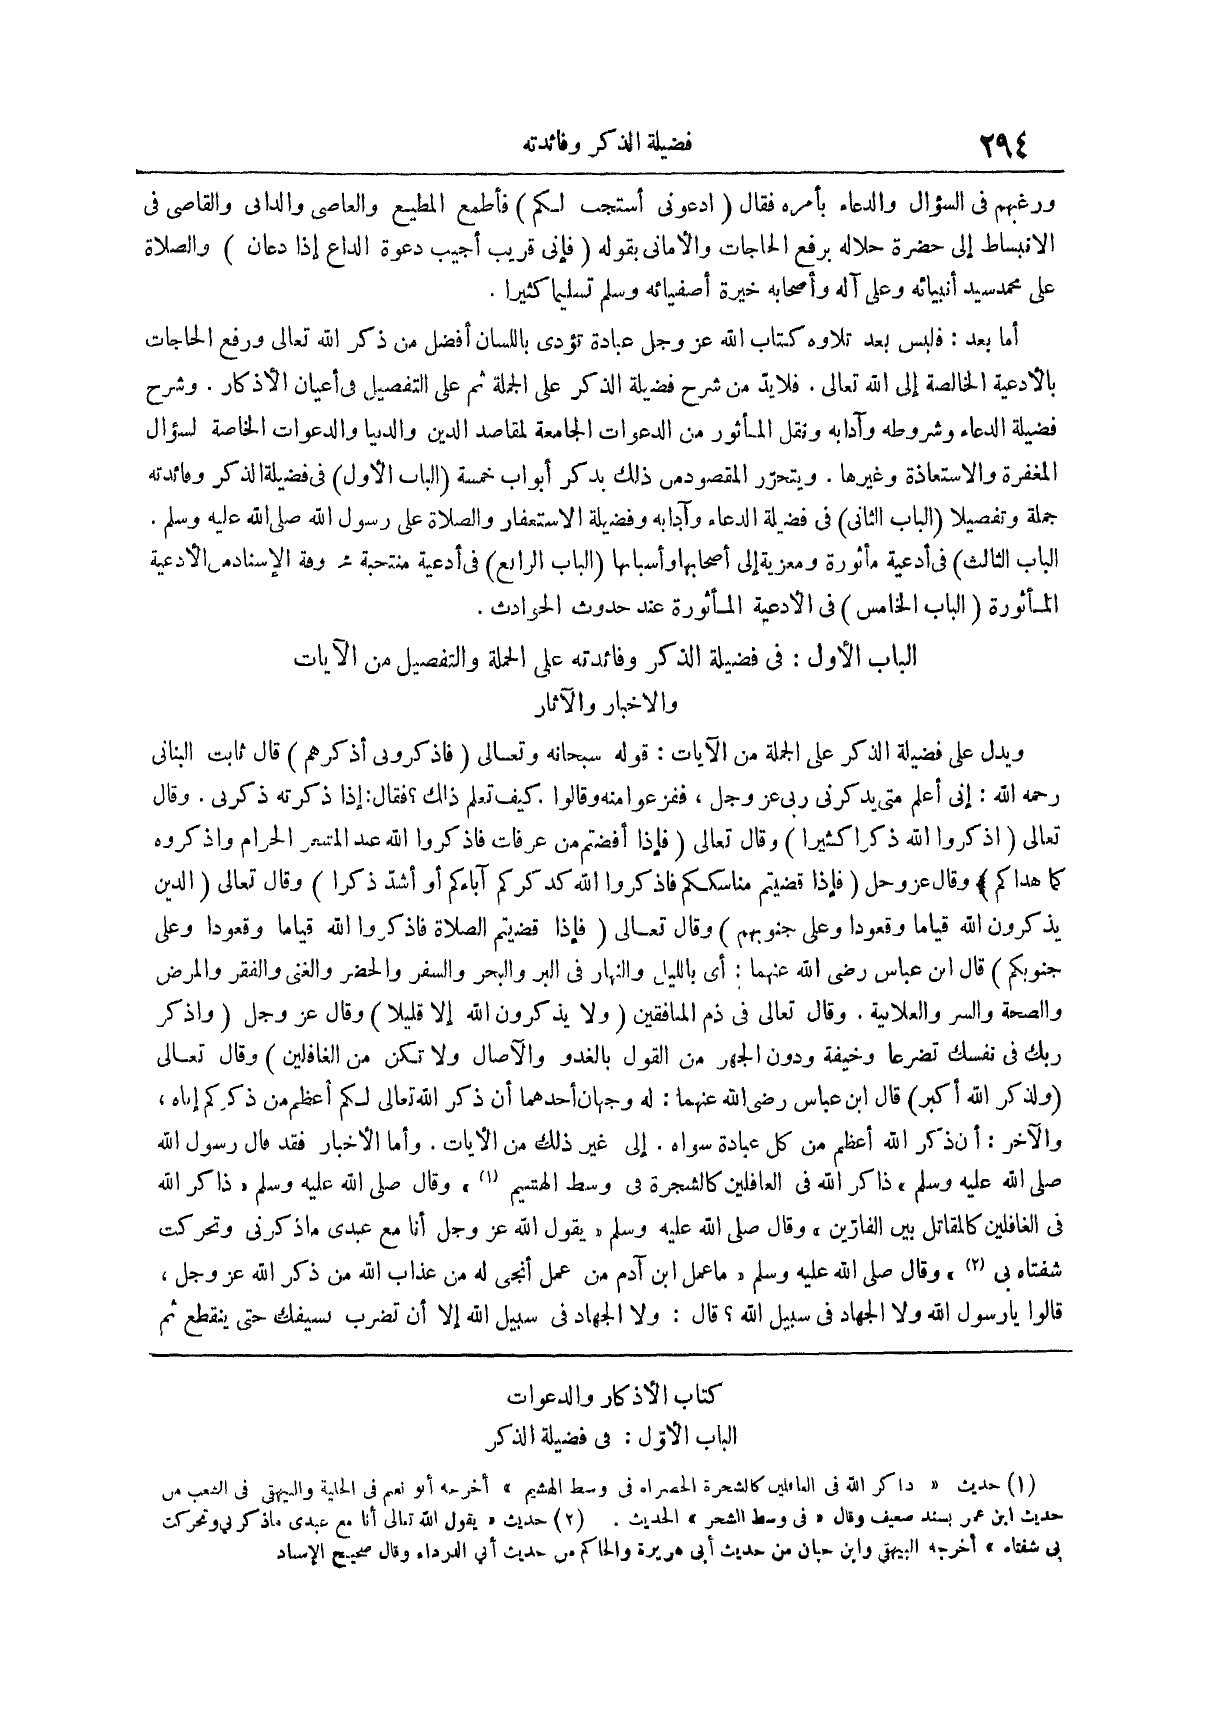 ٢٩٤
فضيلة الذكر وفائدته
ورغبهم فى السؤال والدعاء بأمره فقال ( ادعونى أستجب لكم ) فأطمع المطيع والعاصى والدانى والقاصى فى
الانبساط إلى حضرة جلاله برفع الحاجات والأمانى بقوله ( فإنى قريب أجيب دعوة الداع إذا دعان ) والصلاة
على محمد سيد أنبيائه وعلى آله وأصحابه خيرة أصفيائه وسلم تسليما كثيرا .
أما بعد : فليس بعد تلاوة كتاب الله عز وجل عبادة تؤدى باللسان أفضل من ذكر الله تعالى ورفع الحاجات
بالأدعية الخالصة إلى الله تعالى . فلابدّ من شرح فضيلة الذكر على الجملة ثم على التفصيل فى أعيان الأذكار . وشرح
فضيلة الدعاء وشروطه وآدابه ونقل المأثور من الدعوات الجامعة لمقاصد الدين والدنيا والدعوات الخاصة لسؤال
المغفرة والاستعاذة وغيرها . ويتحرّر المقصود من ذلك بذكر أبواب خمسة (الباب الأول) فى فضيلة الذكر وفائدته
جملة وتفصيلا (الباب الثانى) فى فضيلة الدعاء وآدابه وفضيلة الاستغفار والصلاة على رسول الله صلى الله عليه وسلم .
الباب الثالث) فى أدعية مأثورة ومعزية إلى أصحابها وأسبابها (الباب الرابع) فى أدعية منتخبة محذوفة الإسناد من الأدعية
المأثورة ( الباب الخامس ) فى الأدعية المأثورة عند حدوث الحوادث .
الباب الأول : فى فضيلة الذكر وفائدته على الجملة والتفصيل من الآيات
والاخبار والآثار
ويدل على فضيلة الذكر على الجملة من الآيات : قوله سبحانه وتعالى ( فاذكرونى أذكركم ) قال ثابت البنانى
رحمه الله : إنى أعلم متى يذكرنى ربى عز وجل ، ففزعوا منه وقالوا . كيف تعلم ذلك ؟ فقال : إذا ذكرته ذكرنى . وقال
تعالى ( اذكروا الله ذكرا كثيرا ) وقال تعالى ( فإذا أفضتم من عرفات فاذكروا الله عند المشعر الحرام واذكروه
كما هداكم ) وقال عز وجل ( فإذا قضيتم مناسككم فاذكروا الله كذكركم آباءكم أو أشدّ ذكرا ) وقال تعالى ( الذين
يذكرون الله قياما وقعودا وعلى جنوبهم ) وقال تعالى ( فإذا قضيتم الصلاة فاذكروا الله قياما وقعودا وعلى
جنوبكم ) قال ابن عباس رضى الله عنهما : أى بالليل والنهار فى البر والبحر والسفر والحضر والغنى والفقر والمرض
والصحة والسر والعلانية . وقال تعالى فى ذم المنافقين ( ولا يذكرون الله إلا قليلا ) وقال عز وجل ( واذكر
ربك فى نفسك تضرعا وخيفة ودون الجهر من القول بالغدو والآصال ولا تكن من الغافلين ) وقال تعالى
(ولذكر الله أكبر) قال ابن عباس رضى الله عنهما : له وجهان أحدهما أن ذكر الله تعالى لكم أعظم من ذكركم إياه ،
والآخر : أن ذكر الله أعظم من كل عبادة سواه . إلى غير ذلك من الآيات . وأما الأخبار فقد قال رسول الله
صلى الله عليه وسلم « ذاكر الله فى الغافلين كالشجرة فى وسط الهشيم (١) » وقال صلى الله عليه وسلم « ذاكر الله
فى الغافلين كالمقاتل بين الفارّين » وقال صلى الله عليه وسلم « يقول الله عز وجل أنا مع عبدى ماذكرنى وتحركت
شفتاه بى (٢) » وقال صلى الله عليه وسلم « ماعمل ابن آدم من عمل أنجى له من عذاب الله من ذكر الله عز وجل ،
قالوا يارسول الله ولا الجهاد فى سبيل الله ؟ قال : ولا الجهاد فى سبيل الله إلا أن تضرب بسيفك حتى ينقطع ثم
كتاب الأذكار والدعوات
الباب الأوّل : فى فضيلة الذكر
(١) حديث « ذاكر الله فى الغافلين كالشجرة الخضراء فى وسط الهشيم » أخرجه أبو نعيم فى الحلية والبيهقى فى الشعب من
حديث ابن عمر بسند ضعيف وقال « فى وسط الشجر » الحديث . (٢) حديث « يقول الله تعالى أنا مع عبدى ماذكرنى وتحركت
بى شفتاه » أخرجه البيهقى وابن حبان من حديث أبى هريرة والحاكم من حديث أبي الدرداء وقال صحيح الإسناد